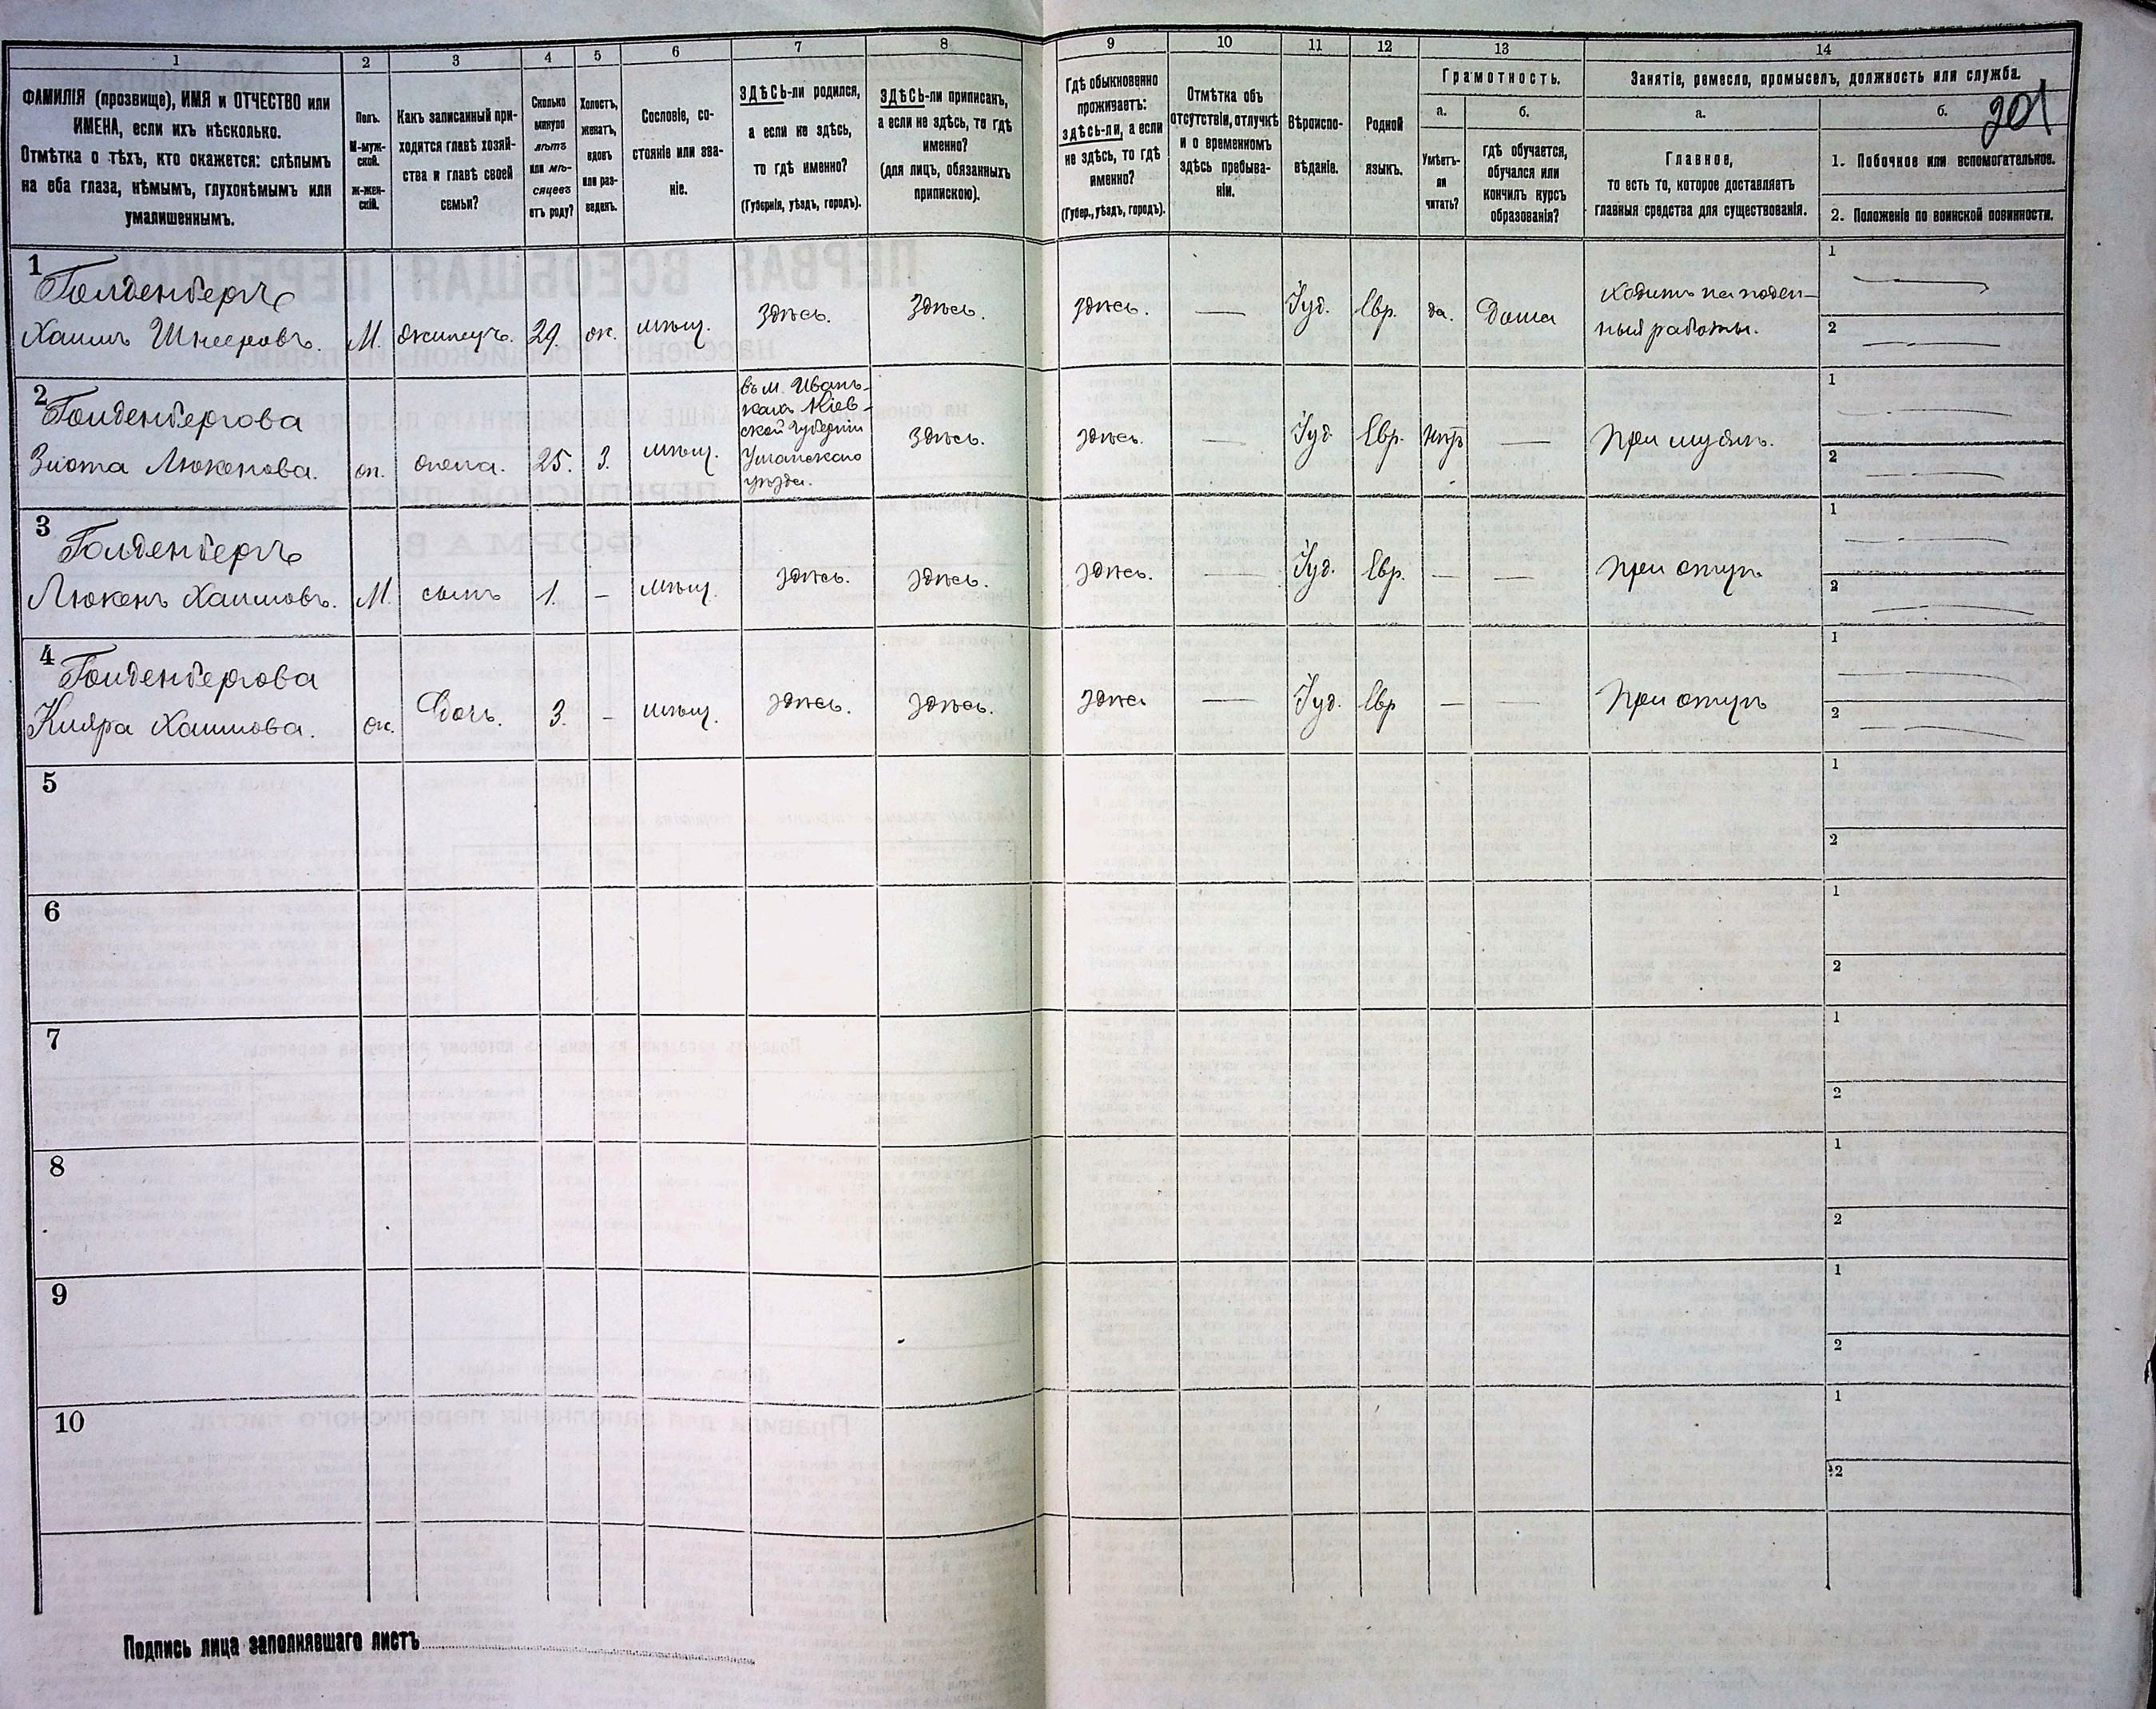 1 2 3 4 5 6 7 8 9 10 11 12 13 14
ФАМИЛІЯ (прозвище), ИМЯ и ОТЧЕСТВО или
ИМЕНА, если ихъ нѣсколько.
Отмѣтка о тѣхъ, кто окажется: слѣпымъ
на оба глаза, нѣмымъ, глухонѣмымъ или
умалишеннымъ.
Полъ.
М-муж-
ской.
ж-жен-
скій.
Какъ записанный при-
ходится главѣ хозяй-
ства и главѣ своей
семьи?
Сколько
минуло
лѣтъ
или мѣ-
сяцевъ
отъ роду?
Холостъ,
женатъ,
вдовъ
или раз-
веденъ.
Сословіе, со-
стояніе или зва-
ніе.
ЗДѢСЬ-ли родился,
а если не здѣсь,
то гдѣ именно?
(Губернія, уѣздъ, городъ).
ЗДѢСЬ-ли приписанъ,
а если не здѣсь, то гдѣ
именно?
(для лицъ, обязанныхъ
припискою).
Гдѣ обыкновенно
проживаетъ:
здѣсь-ли, а если
не здѣсь, то гдѣ
именно?
(Губер., уѣздъ, городъ).
Отмѣтка объ
отсутствіи, отлучкѣ
и о временномъ
здѣсь пребыва-
ніи.
Вѣроиспо-
вѣданіе.
Родной
языкъ.
Грамотность.
а.
Умѣетъ-
ли
читать?
б.
гдѣ обучается,
обучался или
кончилъ курсъ
образованія?
Занятіе, ремесло, промыселъ, должность или служба.
а.
Главное,
то есть то, которое доставляетъ
главныя средства для существованія.
б.
201
1. Побочное или вспомогательное.
2. Положеніе по воинской повинности.
1
Голденбергъ
Хаимъ Шнееровъ. М. 29. ж. мѣщ. здѣсь. здѣсь. здѣсь. — Іуд. Евр. да. Дома
Ходитъ на поден-
ныя работы.
1 —
2 —
2
Голденбергова
Злота Люкенова. ж. жена. 25. З. мѣщ.
въ м. Івань-
кахъ Кіев-
ской губерніи
Уманскаго
уѣзда.
здѣсь. здѣсь. — Іуд. Евр. нѣтъ — При мужѣ.
1 —
2 —
3
Голденбергъ
Люкенъ Хаимовъ. М. сынъ 1. – мѣщ. здѣсь. здѣсь. здѣсь. — Іуд. Евр. — — При отцѣ.
1 —
2 —
4
Голденбергова
Хаимова. ж. Дочь. 3. – мѣщ. здѣсь. здѣсь. здѣсь — Іуд. Евр — — При отцѣ
1 —
2 —
5
1
2
6
1
2
7
1
2
8
1
2
9
1
2
10
1
2
Подпись лица заполнявшаго листъ